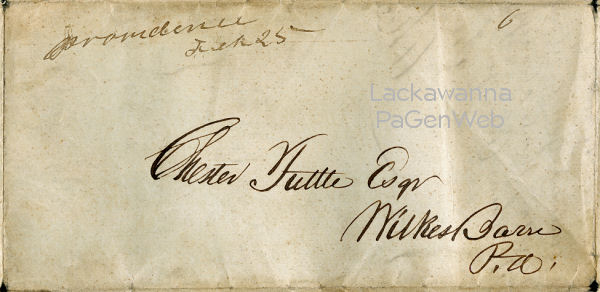 Providence
Feb 25
6
Lackawanna
PaGenWeb
Chester Tuttle Esqr
Wilkes Barre
P.a.